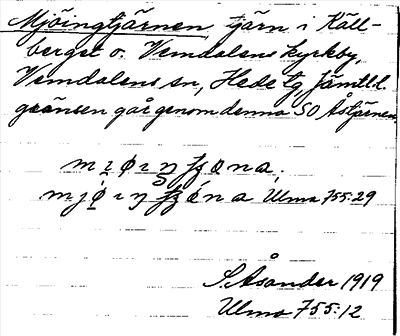 Mjöingtjärnen tjärn i Käll-
berget o. Vemdalens kyrkby,
Vemdalens sn, Hede tg, Jämtl. l.
gränsen går genom denna SO Åstjärnen
Ulma 755:29
S. Åsander 1919
Ulma 755:12